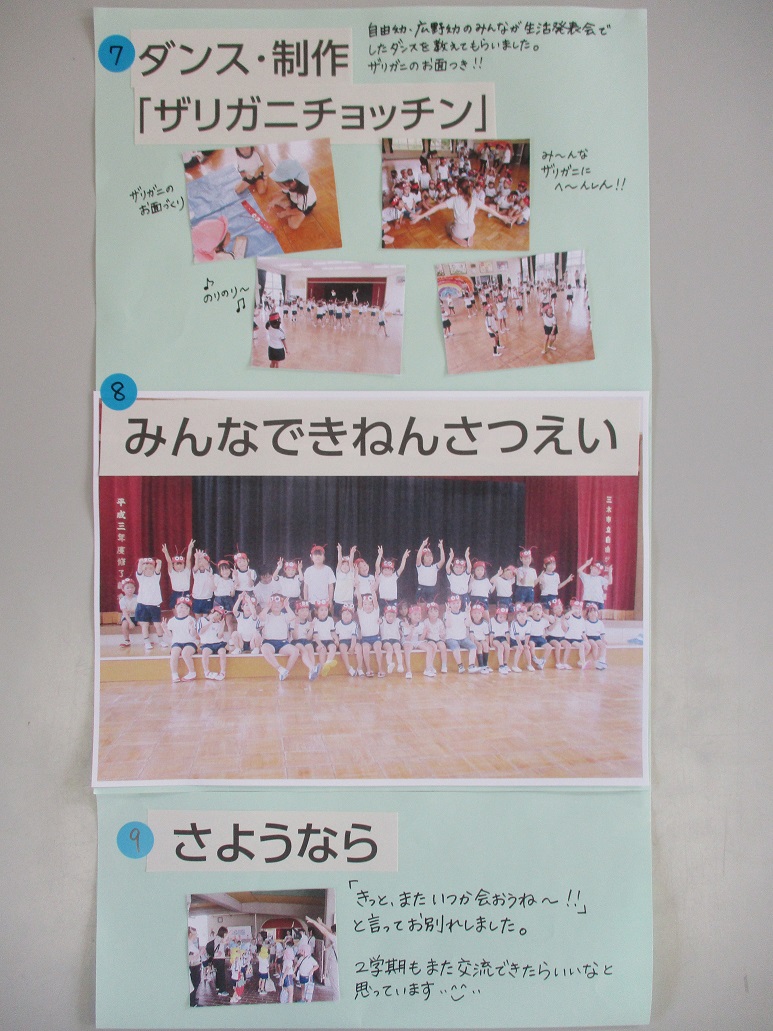 7
ダンス・制作
「ザリガニチョッチン」
自由幼・広野幼のみんなが生活発表会で
したダンスを教えてもらいました。
ザリガニのお面つき!!
ザリガニの
お面づくり
み〜んな
ザリガニに
へ〜んしん!!
♪
のりのり〜
♫
8
みんなできねんさつえい
平成三年度修了
三木市立
9
さようなら
「きっと、また いつか会おうね〜!!」
と言ってお別れしました。
2学期もまた交流できたらいいなと
思っています